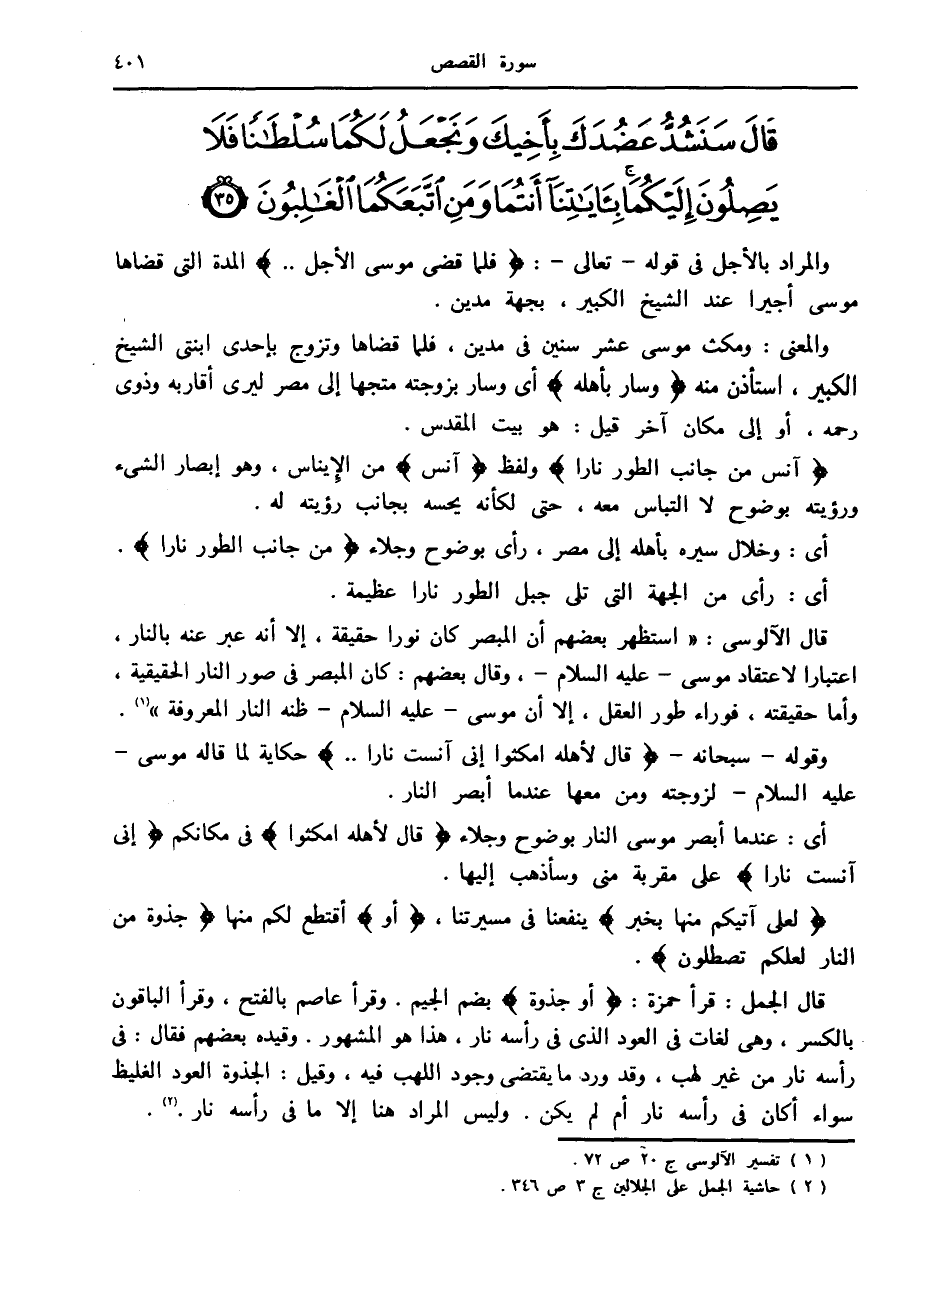 سورة القصص ٤٠١
قَالَ سَنَشُدُّ عَضُدَكَ بِأَخِيكَ وَنَجْعَلُ لَكُمَا سُلْطَٰنًا فَلَا
يَصِلُونَ إِلَيْكُمَا ۚ بِـَٔايَٰتِنَآ أَنتُمَا وَمَنِ ٱتَّبَعَكُمَا ٱلْغَٰلِبُونَ ﴿٣٥﴾
والمراد بالأجل فى قوله - تعالى - : ﴿ فلما قضى موسى الأجل .. ﴾ المدة التى قضاها
موسى أجيرا عند الشيخ الكبير ، بجهة مدين .
والمعنى : ومكث موسى عشر سنين فى مدين ، فلما قضاها وتزوج بإحدى ابنتى الشيخ
الكبير ، استأذن منه ﴿ وسار بأهله ﴾ أى وسار بزوجته متجها إلى مصر ليرى أقاربه وذوى
رحمه ، أو إلى مكان آخر قيل : هو بيت المقدس .
﴿ آنس من جانب الطور نارا ﴾ ولفظ ﴿ آنس ﴾ من الإيناس ، وهو إبصار الشىء
ورؤيته بوضوح لا التباس معه ، حتى لكأنه يحسه بجانب رؤيته له .
أى : وخلال سيره بأهله إلى مصر ، رأى بوضوح وجلاء ﴿ من جانب الطور نارا ﴾ .
أى : رأى من الجهة التى تلى جبل الطور نارا عظيمة .
قال الآلوسى : « استظهر بعضهم أن المبصر كان نورا حقيقة ، إلا أنه عبر عنه بالنار ،
اعتبارا لاعتقاد موسى - عليه السلام - ، وقال بعضهم : كان المبصر فى صور النار الحقيقية ،
وأما حقيقته ، فوراء طور العقل ، إلا أن موسى - عليه السلام - ظنه النار المعروفة »(١) .
وقوله - سبحانه - ﴿ قال لأهله امكثوا إنى آنست نارا .. ﴾ حكاية لما قاله موسى -
عليه السلام - لزوجته ومن معها عندما أبصر النار .
أى : عندما أبصر موسى النار بوضوح وجلاء ﴿ قال لأهله امكثوا ﴾ فى مكانكم ﴿ إنى
آنست نارا ﴾ على مقربة منى وسأذهب إليها .
﴿ لعلى آتيكم منها بخبر ﴾ ينفعنا فى مسيرتنا ، ﴿ أو ﴾ أقتطع لكم منها ﴿ جذوة من
النار لعلكم تصطلون ﴾ .
قال الجمل : قرأ حمزة : ﴿ أو جذوة ﴾ بضم الجيم . وقرأ عاصم بالفتح ، وقرأ الباقون
بالكسر ، وهى لغات فى العود الذى فى رأسه نار ، هذا هو المشهور . وقيده بعضهم فقال : فى
رأسه نار من غير لهب ، وقد ورد ما يقتضى وجود اللهب فيه ، وقيل : الجذوة العود الغليظ
سواء أكان فى رأسه نار أم لم يكن . وليس المراد هنا إلا ما فى رأسه نار .(٢) .
( ١ ) تفسير الآلوسى ج ٢٠ ص ٧٢ .
( ٢ ) حاشية الجمل على الجلالين ج ٣ ص ٣٤٦ .